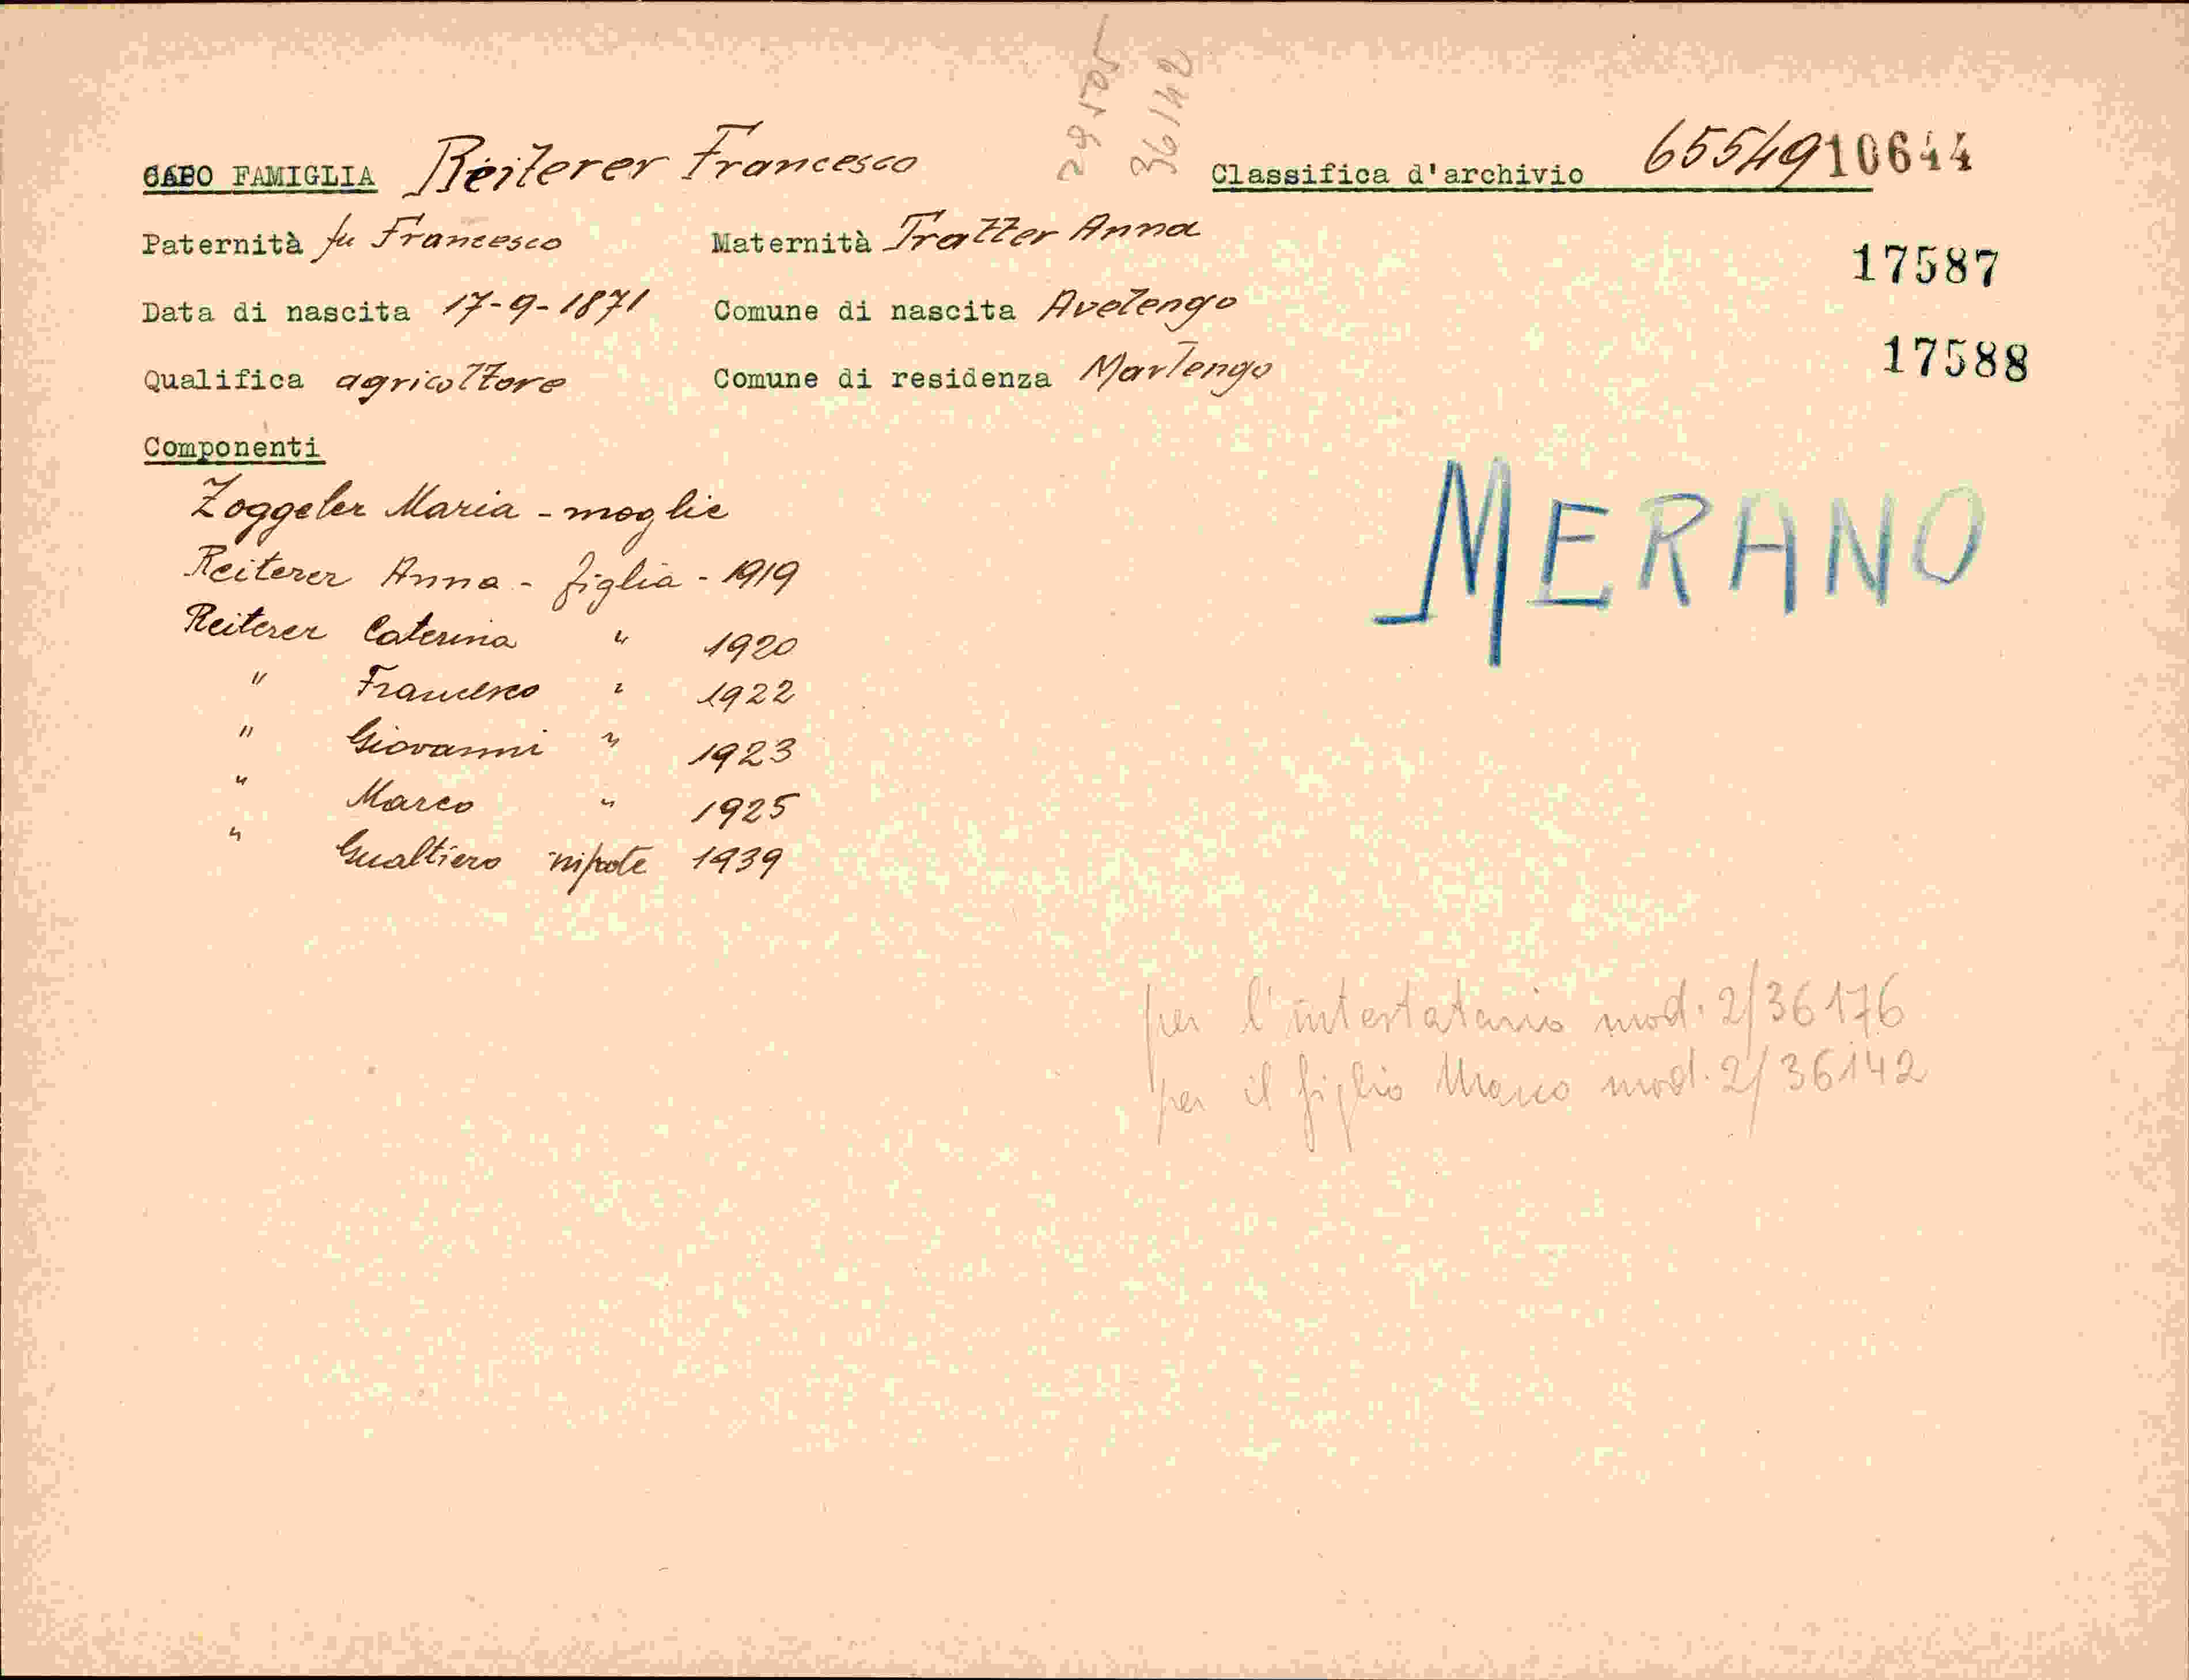 29505
36142
CAPO FAMIGLIA Reiterer Francesco
Classifica d'archivio 65549 10644
Paternità fu Francesco Maternità Tratter Anna
17587
Data di nascita 17-9-1871 Comune di nascita Avelengo
17588
Qualifica agricoltore Comune di residenza Marlengo
Componenti
MERANO
Zoggeler Maria - moglie
Reiterer Anna - figlia - 1919
Reiterer Caterina " 1920
" Francesco " 1922
" Giovanni " 1923
" Marco " 1925
" Gualtiero nipote 1939
per l'intestatario mod. 2/36176
per il figlio Marco mod. 2/36142